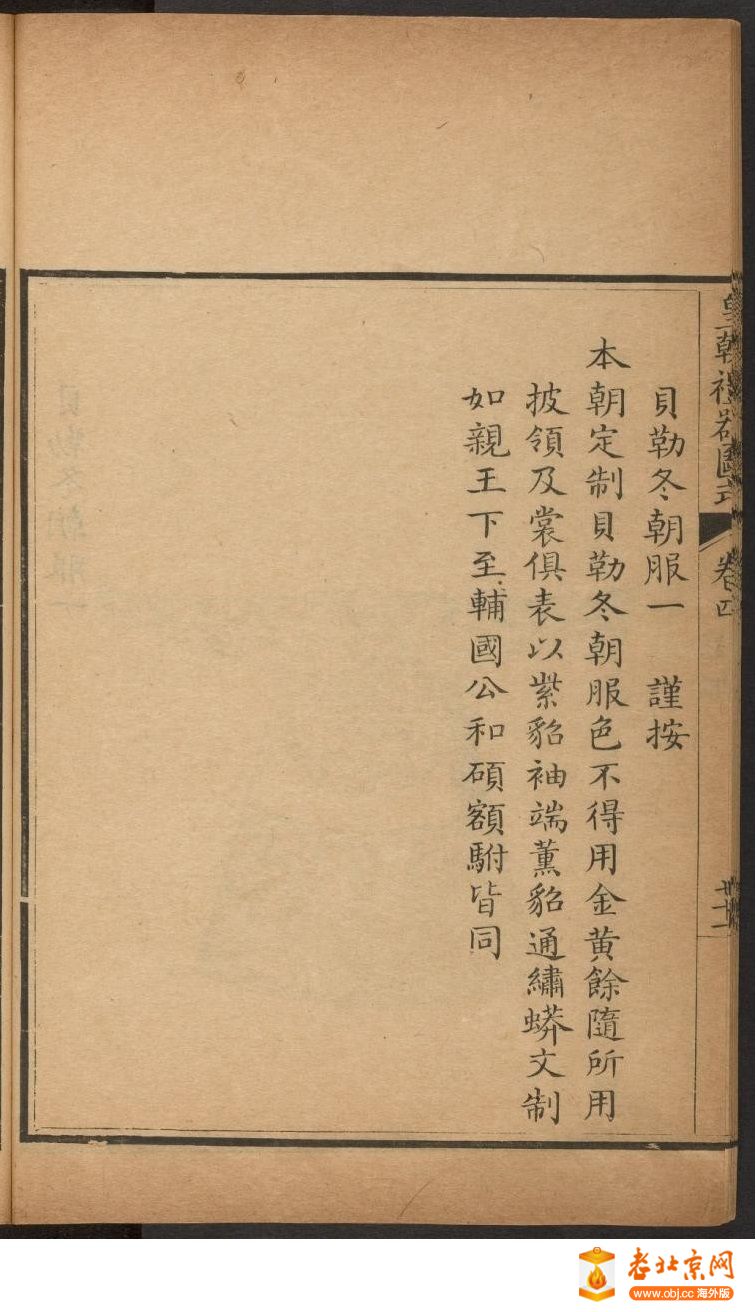 皇朝禮器圖式 卷四
貝勒冬朝服一 謹按
本朝定制貝勒冬朝服色不得用金黃餘隨所用
披領及裳俱表以紫貂袖端薰貂通繡蟒文制
如親王下至輔國公和碩額駙皆同
老北京网
www.obj.cc 海外版